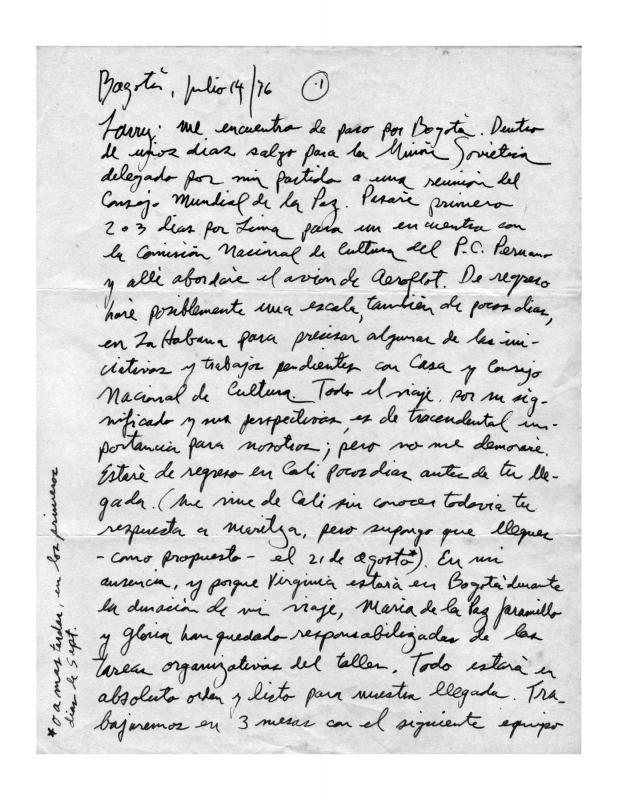 Bogotà, julio 14/76 1
Larry: me encuentro de paso por Bogotà. Dentro
de unos dias salgo para la Unión Sovietica
delegado por mi partido a una reunión del
Consejo Mundial de la Paz. Pasaré primero
2 o 3 dias por Lima para un encuentro con
la Comisión Nacional de Cultura del P.C. Peruano
y allí abordaré el avion de Aeroflot. De regreso
haré posiblemente una escala, también de pocos dias,
en La Habana para precisar algunas de las ini-
ciativas y trabajos pendientes con Casa y Consejo
Nacional de Cultura. Todo el viaje, por su sig-
nificado y sus perspectivas, es de tracendental im-
portancia para nosotros; pero no me demoraré.
Estaré de regreso en Cali pocos dias antes de tu lle-
gada. (Me vine de Cali sin conocer todavia tu
respuesta a Maritza, pero supongo que llegues
- como propuesto - el 21 de agosto*). En mi
ausencia, y porque Virginia estarà en Bogotà durante
la duración de mi viaje, Maria de la Paz Jaramillo
y Gloria han quedado responsabilizadas de las
tareas organizativas del taller. Todo estara en
absoluto orden y listo para nuestra llegada. Tra-
bajaremos en 3 mesas con el siguiente equipo
* o a mas tardar, en los primeros
dias de Sept.